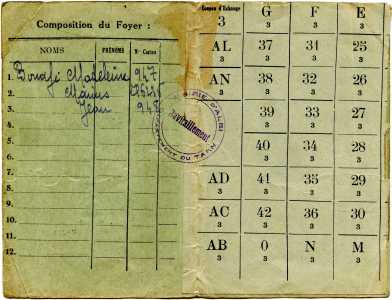 Composition du Foyer :
NOMS PRÉNOMS N° Cartes
1. Madeleine 947
2. Marius
3. Jean 948
4.
5.
6.
7.
8.
9.
10.
11.
12.
MAIRIE D'ALBI
Ravitaillement
DÉPARTEMENT DU TARN
Coupon d'Echange
3 G F E
AL 3 37 3 31 3 25 3
AN 3 38 3 32 3 26 3
39 3 33 3 27 3
40 3 34 3 28 3
AD 3 41 3 35 3 29 3
AC 3 42 3 36 3 30 3
AB 3 0 3 N 3 M 3